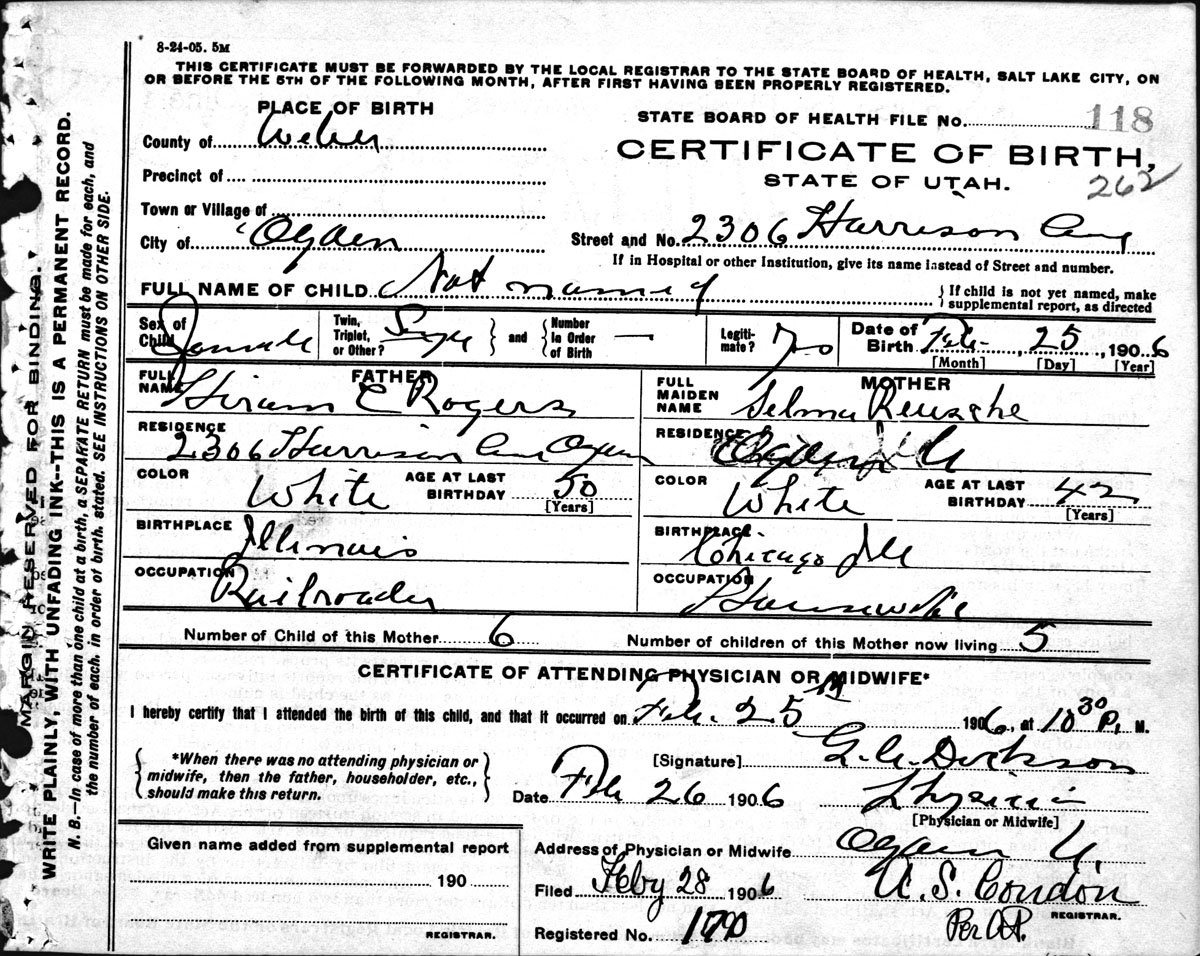 8-24-05. 5M
THIS CERTIFICATE MUST BE FORWARDED BY THE LOCAL REGISTRAR TO THE STATE BOARD OF HEALTH, SALT LAKE CITY, ON
OR BEFORE THE 5TH OF THE FOLLOWING MONTH, AFTER FIRST HAVING BEEN PROPERLY REGISTERED.
MARGIN RESERVED FOR BINDING.
WRITE PLAINLY, WITH UNFADING INK--THIS IS A PERMANENT RECORD.
N. B.—In case of more than one child at a birth, a SEPARATE RETURN must be made for each, and
the number of each, in order of birth, stated. SEE INSTRUCTIONS ON OTHER SIDE.
PLACE OF BIRTH
County of Weber
Precinct of
Town or Village of
City of Ogden
STATE BOARD OF HEALTH FILE NO. 118
CERTIFICATE OF BIRTH,
STATE OF UTAH.
262
Street and No. 2306 Harrison Ave
If in Hospital or other Institution, give its name instead of Street and number.
FULL NAME OF CHILD Not named
{If child is not yet named, make
supplemental report, as directed
Sex of Child Female Twin, Triplet, or Other? Single } and { Number In Order of Birth — Legitimate? Date of Birth Feb. 25, 1906
[Month] [Day] [Year]
FATHER
FULL NAME Hiram E Rogers
RESIDENCE 2306 Harrison Ave Ogden
COLOR White AGE AT LAST BIRTHDAY 50
[Years]
BIRTHPLACE Illinois
OCCUPATION Railroader
MOTHER
FULL MAIDEN NAME Selma Reusche
RESIDENCE Ogden
COLOR White AGE AT LAST BIRTHDAY 42
[Years]
BIRTHPLACE Chicago Ill
OCCUPATION Housewife
Number of Child of this Mother 6 Number of children of this Mother now living 5
CERTIFICATE OF ATTENDING PHYSICIAN OR MIDWIFE*
I hereby certify that I attended the birth of this child, and that it occurred on Feb. 25th 1906, at 10 30 P. M.
{*When there was no attending physician or
midwife, then the father, householder, etc.,
should make this return.}
[Signature] Dickson
Date Feb 26 1906 Physician
[Physician or Midwife]
Given name added from supplemental report
190
REGISTRAR.
Address of Physician or Midwife Ogden U.
Filed Feby 28 1906 U. S. Condon
REGISTRAR.
Registered No. 170 Per